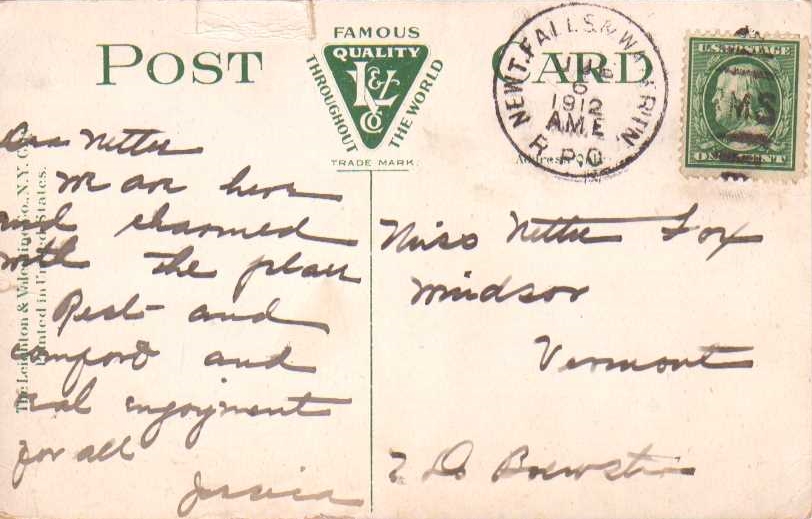 POST CARD
FAMOUS
QUALITY
L&V
CO
THROUGHOUT THE WORLD
TRADE MARK.
NEWT. FALLS & WATERTN
6
1912
A.M.E
R.P.O.
U.S. POSTAGE
ONE CENT
RMS
The Leighton & Valentine Co., N.Y. C
Printed in United States.
Nettie
We are here
and charmed
with the place
Rest and
comfort and
real enjoyment
for all
Jessica
Miss Nettie Fox
Windsor
Vermont
Brewster